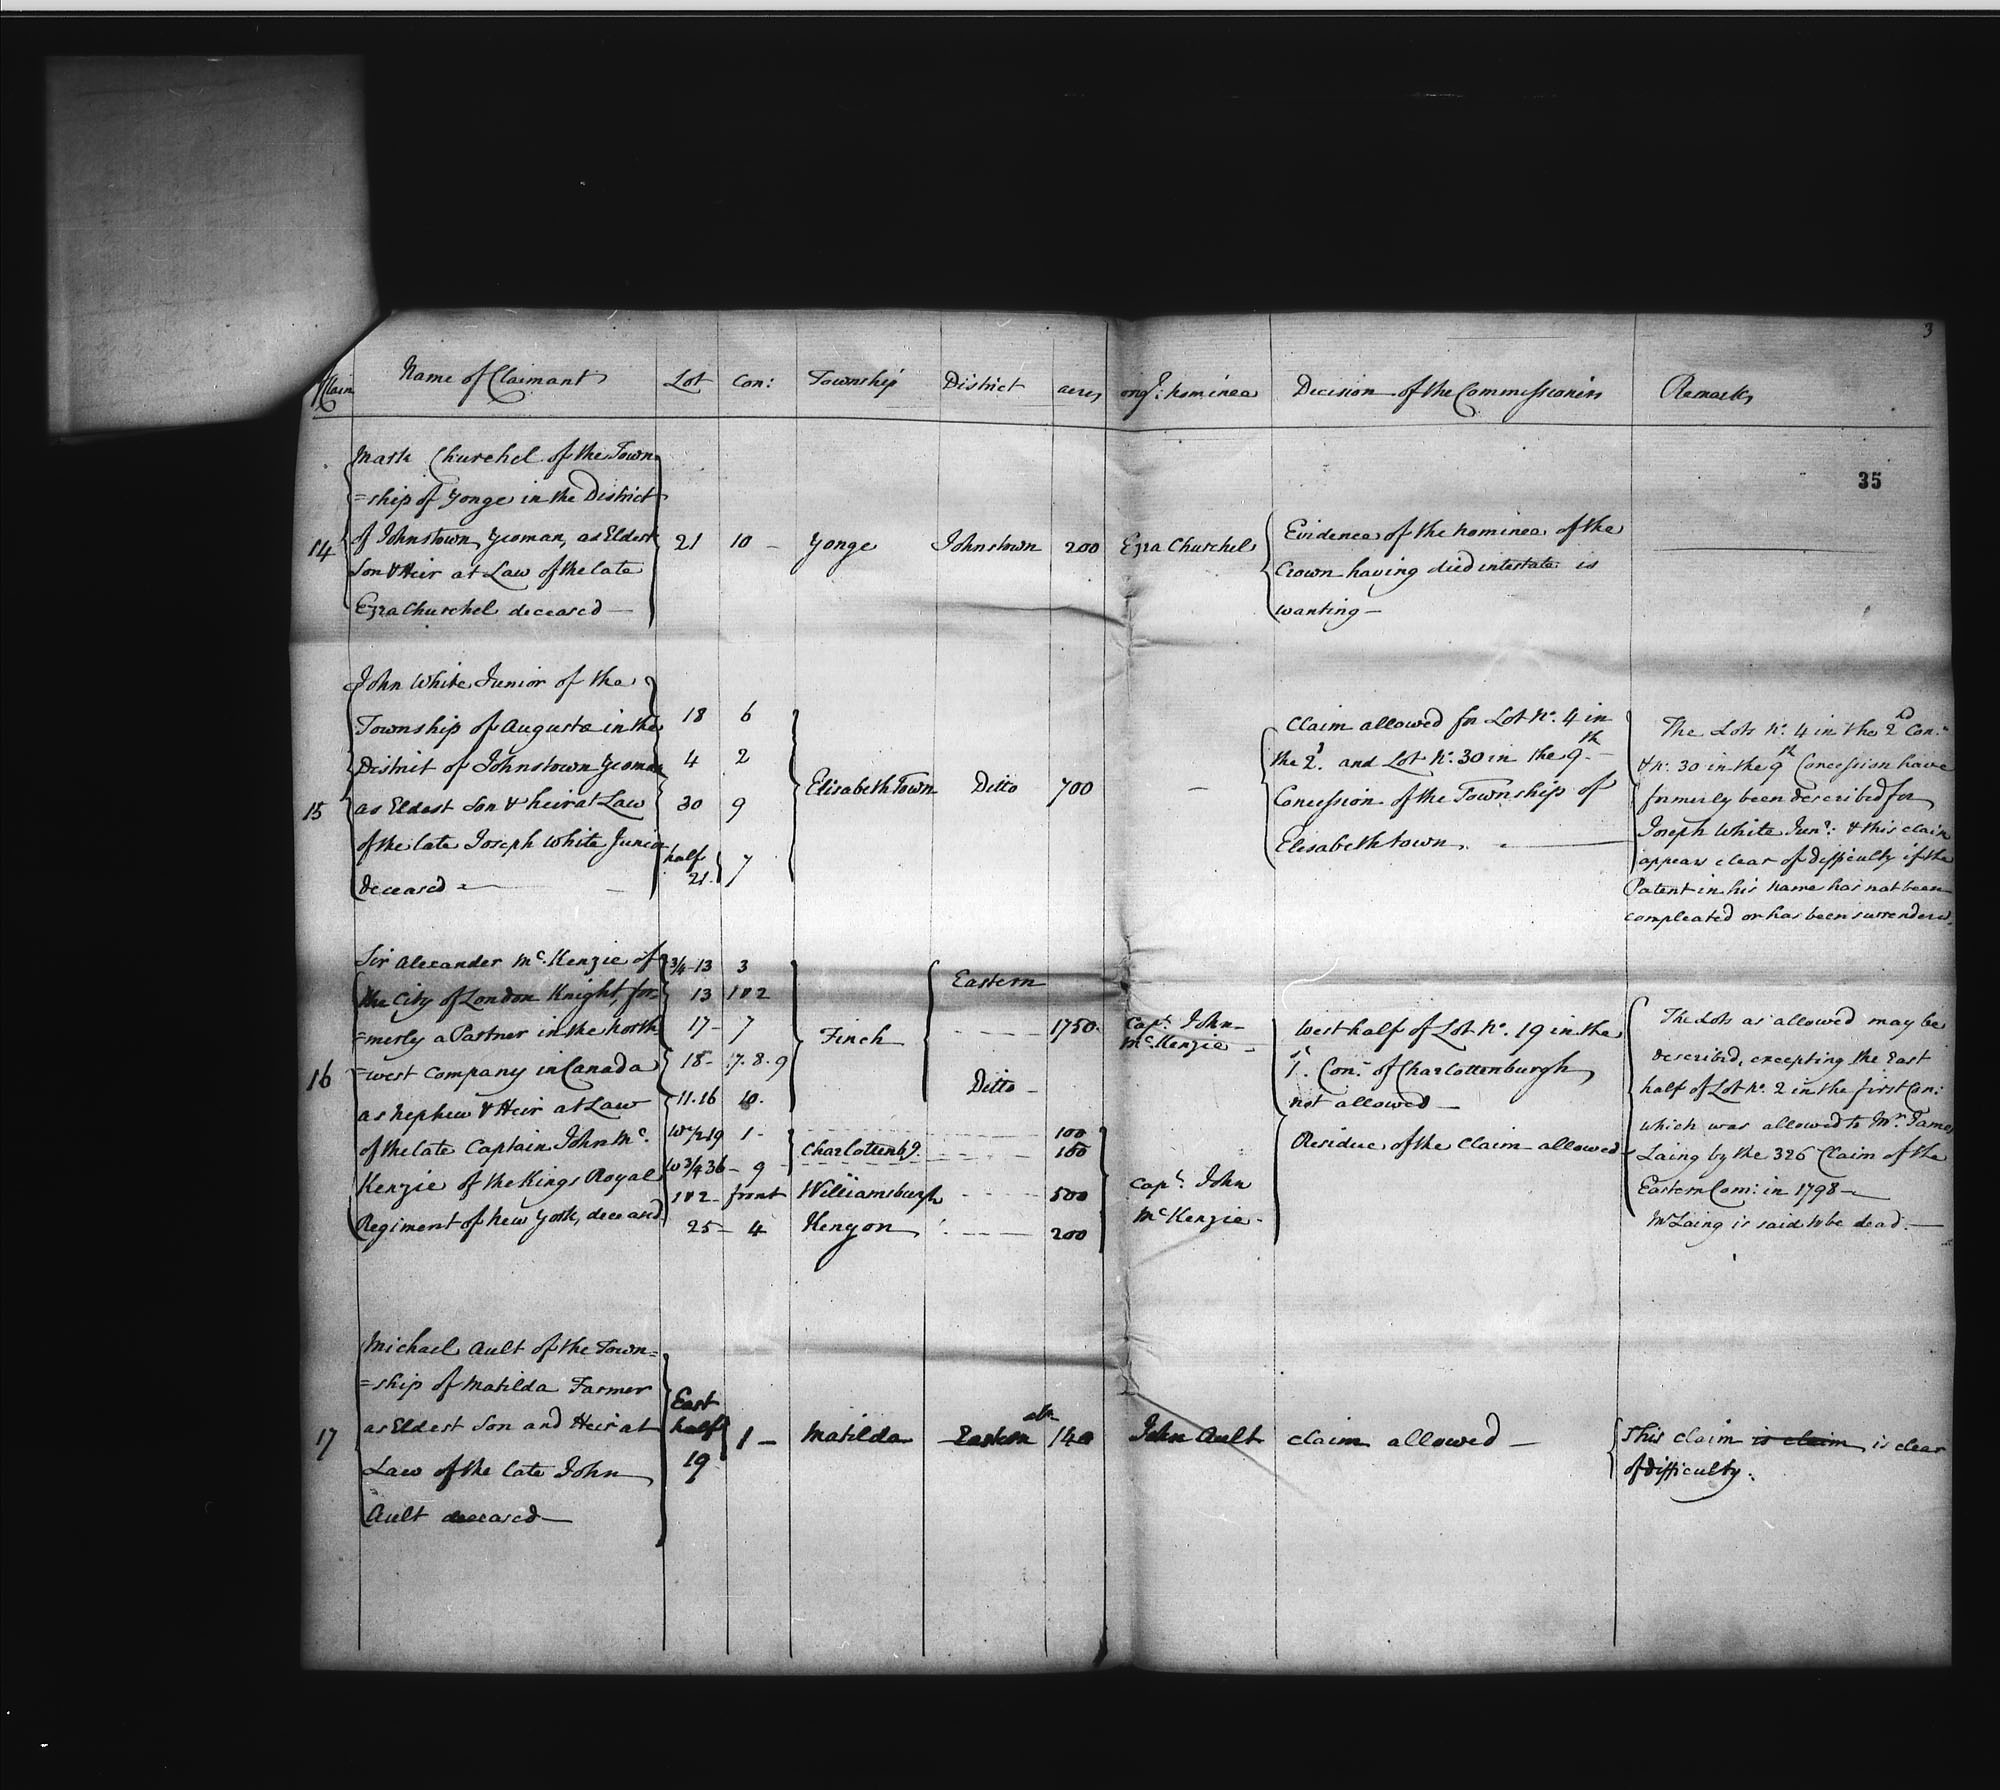 3
Claim Name of Claimant Lot Con: Township District acres orig.l nominee Decision of the Commissioners Remarks
35
14
Mark Churchel of the Town
=ship of Yonge in the District
of Johnstown Yeoman, as Eldest
Son & Heir at Law of the late
Ezra Churchel deceased —
21 10 — Yonge Johnstown 200 Ezra Churchel
Evidence of the nominee of the
Crown having died intestate is
wanting —
15
John White Junior of the
Township of Augusta in the
District of Johnstown Yeoman
as Eldest Son & heir at Law
of the late Joseph White Junior
deceased —
18 6
4 2
30 9
half
21 7
Elisabeth Town Ditto 700 —
Claim allowed for Lot No. 4 in
the 2d. and Lot No. 30 in the 9th —
Concession of the Township of
Elisabethtown. —
The Lots No. 4 in the 2nd Con.
& No. 30 in the 9th Concession have
formerly been described for
Joseph White Junr: & this claim
appears clear of difficulty if the
Patent in his name has not been
compleated or has been surrendered.
16
Sir Alexander McKenzie of
the City of London Knight, for=
=merly a Partner in the North
=west Company in Canada
as Nephew & Heir at Law
of the late Captain John Mc.
Kenzie of the Kings Royal
Regiment of New York, deceased
3/4 13 3
13 1 & 2
17 — 7
18 — 7. 8. 9
11. 16 10.
W 1/2 19 1 —
W 3/4 36 — 9
1 & 2 — front
25 — 4
Finch
Charlottenbg.
Williamsburgh
Kenyon
Eastern
Ditto —
1750
100
150
500
200
Capt. John —
McKenzie —
Capt. John
McKenzie —
West half of Lot No. 19 in the
1st. Con. of Charlottenburgh
not allowed —
Residue of the Claim allowed
The Lots as allowed may be
described, excepting the East
half of Lot No. 2 in the first Con:
which was allowed to Mr. James
Laing by the 326 Claim of the
Eastern Com: in 1798 —
Mr Laing is said to be dead. —
17
Michael Ault of the Town=
=ship of Matilda Farmer
as Eldest Son and Heir at
Law of the late John
Ault deceased —
East
half
19
1 — Matilda Eastern 140 John Ault claim allowed —
This claim is claim is clear
of difficulty.